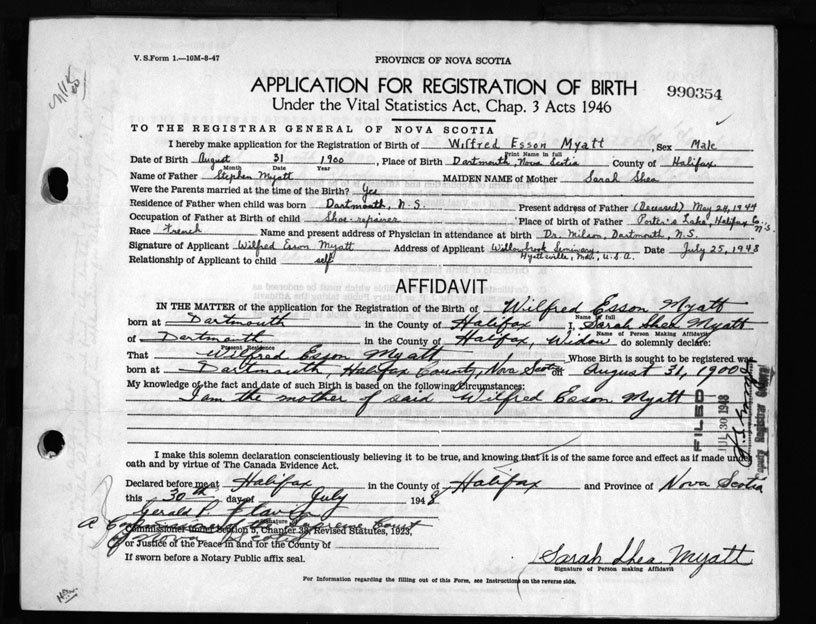 V. S. Form 1.—10M-8-47
PROVINCE OF NOVA SCOTIA
APPLICATION FOR REGISTRATION OF BIRTH
990354
Under the Vital Statistics Act, Chap. 3 Acts 1946
TO THE REGISTRAR GENERAL OF NOVA SCOTIA
I hereby make application for the Registration of Birth of Wilfred Esson Myatt, Sex Male
Print Name in full
Date of Birth August 31 1900, Place of Birth Dartmouth, Nova Scotia County of Halifax
Month Date Year
Name of Father Stephen Myatt MAIDEN NAME of Mother Sarah Shea
Were the Parents married at the time of the Birth? Yes
Residence of Father when child was born Dartmouth, N.S. Present address of Father (Deceased) May 24, 1944
Occupation of Father at Birth of child Shoe-repairer Place of birth of Father Porter's Lake, Halifax Co., N.S.
Race French Name and present address of Physician in attendance at birth Dr. Milson, Dartmouth, N.S.
Signature of Applicant Wilfred Esson Myatt Address of Applicant Willowbrook Seminary, Date July 25, 1948
Relationship of Applicant to child self Hyattsville, Md., U.S.A.
AFFIDAVIT
IN THE MATTER of the application for the Registration of the Birth of Wilfred Esson Myatt
Name in full
born at Dartmouth in the County of Halifax I, Sarah Shea Myatt
Name of Person Making Affidavit
of Dartmouth in the County of Halifax, Widow do solemnly declare:
Present Residence
That Wilfred Esson Myatt Whose Birth is sought to be registered was
born at Dartmouth, Halifax County, Nova Scotia on August 31, 1900
My knowledge of the fact and date of such Birth is based on the following Circumstances:
I am the mother of said Wilfred Esson Myatt
FILED
JUL 30 1948
Deputy Registrar General
I make this solemn declaration conscientiously believing it to be true, and knowing that it is of the same force and effect as if made under
oath and by virtue of The Canada Evidence Act.
Declared before me at Halifax in the County of Halifax and Province of Nova Scotia
this 30th day of July 1948
Gerald P. Flavin
Signature
A Commissioner of the Supreme Court
of Nova Scotia
Commissioner under Section 5, Chapter 38, Revised Statutes, 1923,
or Justice of the Peace in and for the County of
If sworn before a Notary Public affix seal.
Sarah Shea Myatt
Signature of Person making Affidavit
For Information regarding the filling out of this Form, see Instructions on the reverse side.